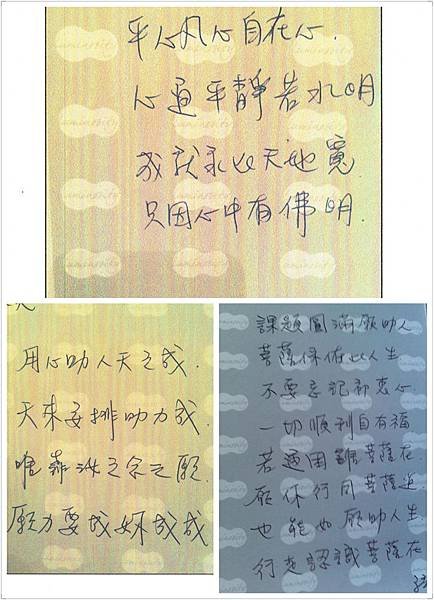 平心凡心自在心.
心面平靜若水明
成就永如天地寬
只因心中有佛明.
用心助人天之成.
天來安排助力成.
唯
之念之願
願力要成
成成
課題圓滿願助人
菩薩保佑此人生
不要忘記初衷心.
一切順利自有福
若遇困難菩薩在.
願你行同菩薩道
也能如願助人生
行走認識菩薩在
uminosity